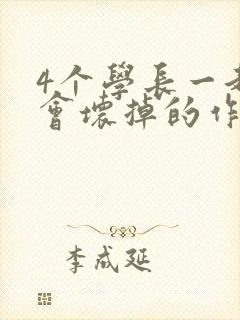 4个學長一
會壞掉的作
李成延